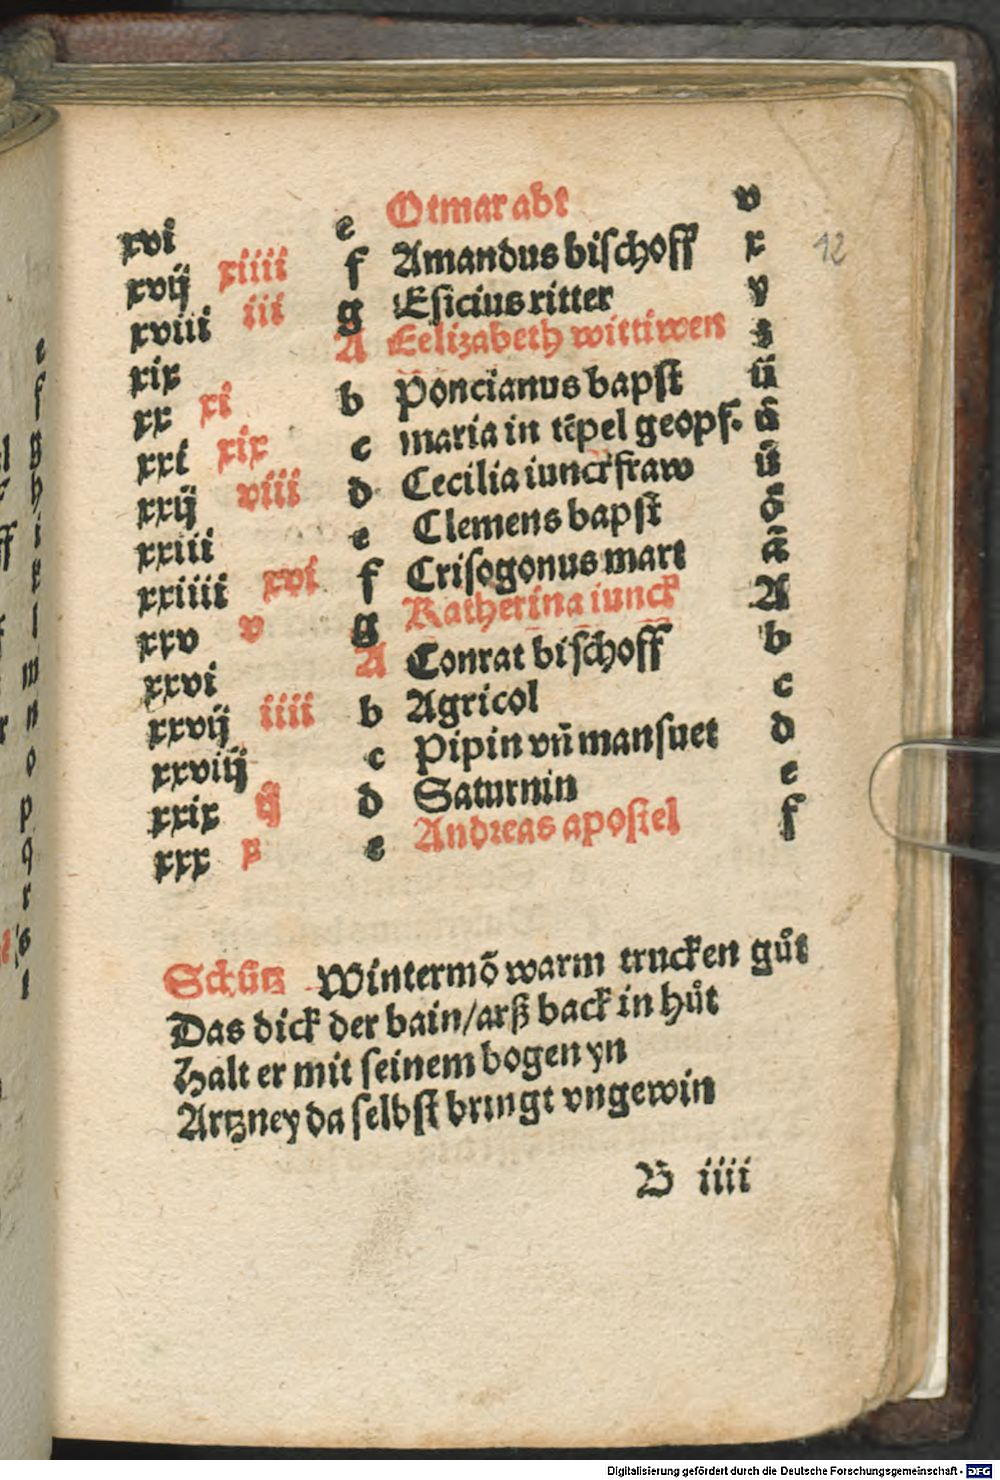 xvi e Otmar abt v
xvij xiiii f Amandus bischoff x
xviii iii g Esicius ritter y
xix A Eelizabeth wittiwen z
xx xi b Poncianus bapst ü
xxi xix c maria in tēpel geopf.
xxij viii d Cecilia iunckfraw
xxiii e Clemens bapst ō
xxiiii xvi f Crisogonus mart ā
xxv v g Katherina iunck A
xxvi A Conrat bischoff b
xxvij iiii b Agricol c
xxviiij c Pipin vñ mansuet d
xxix ij d Saturnin e
xxx x e Andreas apostel f
12
Schütz Wintermō warm trucken gůt
Das dick der bain/arß back in hůt
Halt er mit seinem bogen yn
Artzney da selbst bringt vngewin
B iiii
e
f
g
h
i
k
l
m
n
o
p
q
r
s
t
Digitalisierung gefördert durch die Deutsche Forschungsgemeinschaft - DFG